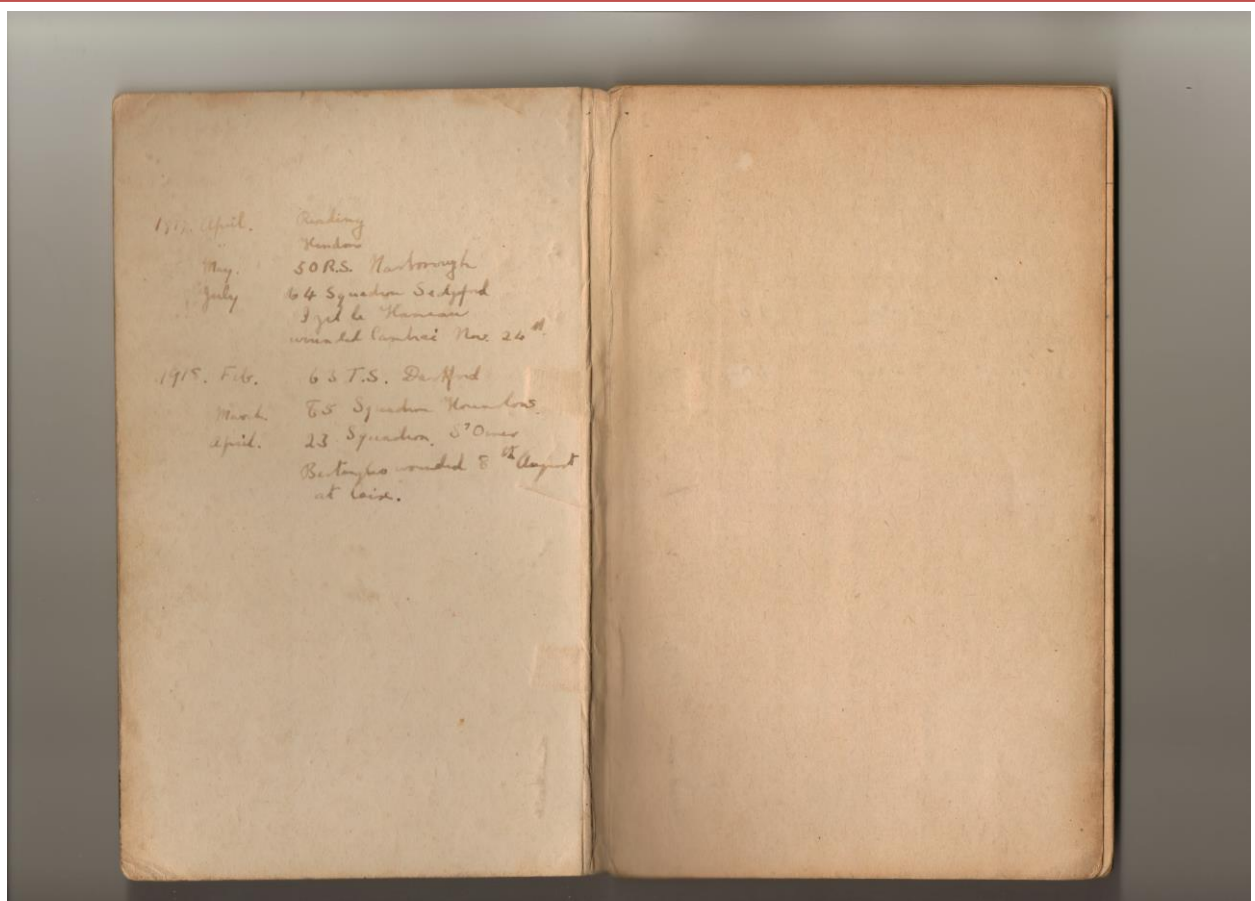 1917. April. Reading
" Hendon
May. 50 R.S. Narborough
July 64 Squadron Sedgford
Izel le Hameau
wounded Cambrai Nov. 24th
1918. Feb. 6 S.T.S. Dartford
March 85 Squadron Hounslow
April. 23 Squadron. St Omer
Bertangles wounded 8th August
at